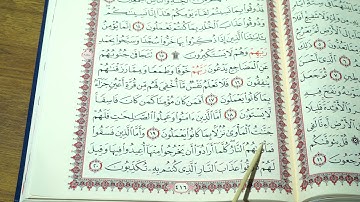 فَذُوقُوا۟ بِمَا نَسِيتُمْ لِقَآءَ يَوْمِكُمْ هَٰذَآ إِنَّا نَسِينَٰكُمْ
وَذُوقُوا۟ عَذَابَ ٱلْخُلْدِ بِمَا كُنتُمْ تَعْمَلُونَ ١٤ إِنَّمَا يُؤْمِنُ
بِـَٔايَٰتِنَا ٱلَّذِينَ إِذَا ذُكِّرُوا۟ بِهَا خَرُّوا۟ سُجَّدًا وَسَبَّحُوا۟ بِحَمْدِ
رَبِّهِمْ وَهُمْ لَا يَسْتَكْبِرُونَ ۩ ١٥ تَتَجَافَىٰ جُنُوبُهُمْ
عَنِ ٱلْمَضَاجِعِ يَدْعُونَ رَبَّهُمْ خَوْفًا وَطَمَعًا وَمِمَّا رَزَقْنَٰهُمْ
يُنفِقُونَ ١٦ فَلَا تَعْلَمُ نَفْسٌ مَّآ أُخْفِىَ لَهُم مِّن قُرَّةِ أَعْيُنٍ جَزَآءًۢ
بِمَا كَانُوا۟ يَعْمَلُونَ ١٧ أَفَمَن كَانَ مُؤْمِنًا كَمَن كَانَ فَاسِقًا
لَّا يَسْتَوُۥنَ ١٨ أَمَّا ٱلَّذِينَ ءَامَنُوا۟ وَعَمِلُوا۟ ٱلصَّٰلِحَٰتِ فَلَهُمْ
جَنَّٰتُ ٱلْمَأْوَىٰ نُزُلًۢا بِمَا كَانُوا۟ يَعْمَلُونَ ١٩ وَأَمَّا ٱلَّذِينَ فَسَقُوا۟
فَمَأْوَىٰهُمُ ٱلنَّارُ كُلَّمَآ أَرَادُوٓا۟ أَن يَخْرُجُوا۟ مِنْهَآ أُعِيدُوا۟ فِيهَا وَقِيلَ
لَهُمْ ذُوقُوا۟ عَذَابَ ٱلنَّارِ ٱلَّذِى كُنتُم بِهِۦ تُكَذِّبُونَ ٢٠
٤١٦